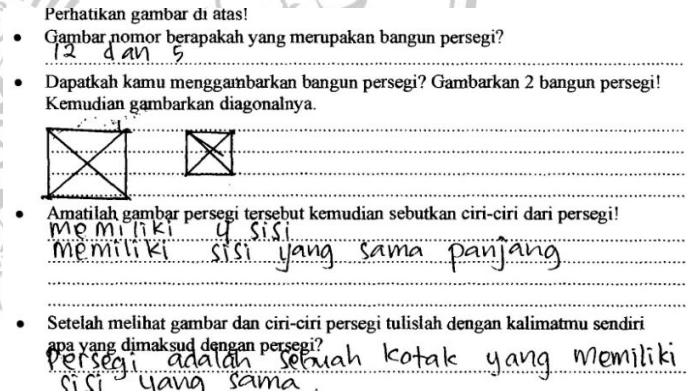 Perhatikan gambar di atas!
Gambar nomor berapakah yang merupakan bangun persegi?
12 dan 5
Dapatkah kamu menggambarkan bangun persegi? Gambarkan 2 bangun persegi!
Kemudian gambarkan diagonalnya.
Amatilah gambar persegi tersebut kemudian sebutkan ciri-ciri dari persegi!
memiliki 4 sisi
memiliki sisi yang sama panjang
Setelah melihat gambar dan ciri-ciri persegi tulislah dengan kalimatmu sendiri
apa yang dimaksud dengan persegi?
Persegi adalah sebuah kotak yang memiliki
sisi yang sama.